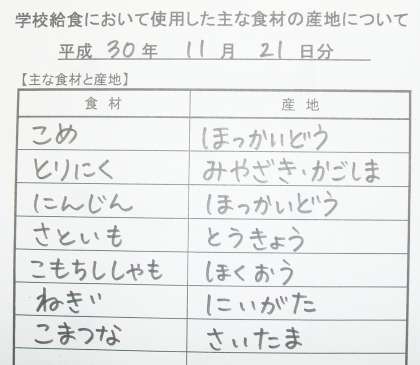 学校給食において使用した主な食材の産地について
平成 30 年 11 月 21 日分
【主な食材と産地】
食材 産地
こめ ほっかいどう
とりにく みやざき・かごしま
にんじん ほっかいどう
さといも とうきょう
こもちししゃも ほくおう
ねぎ にいがた
こまつな さいたま